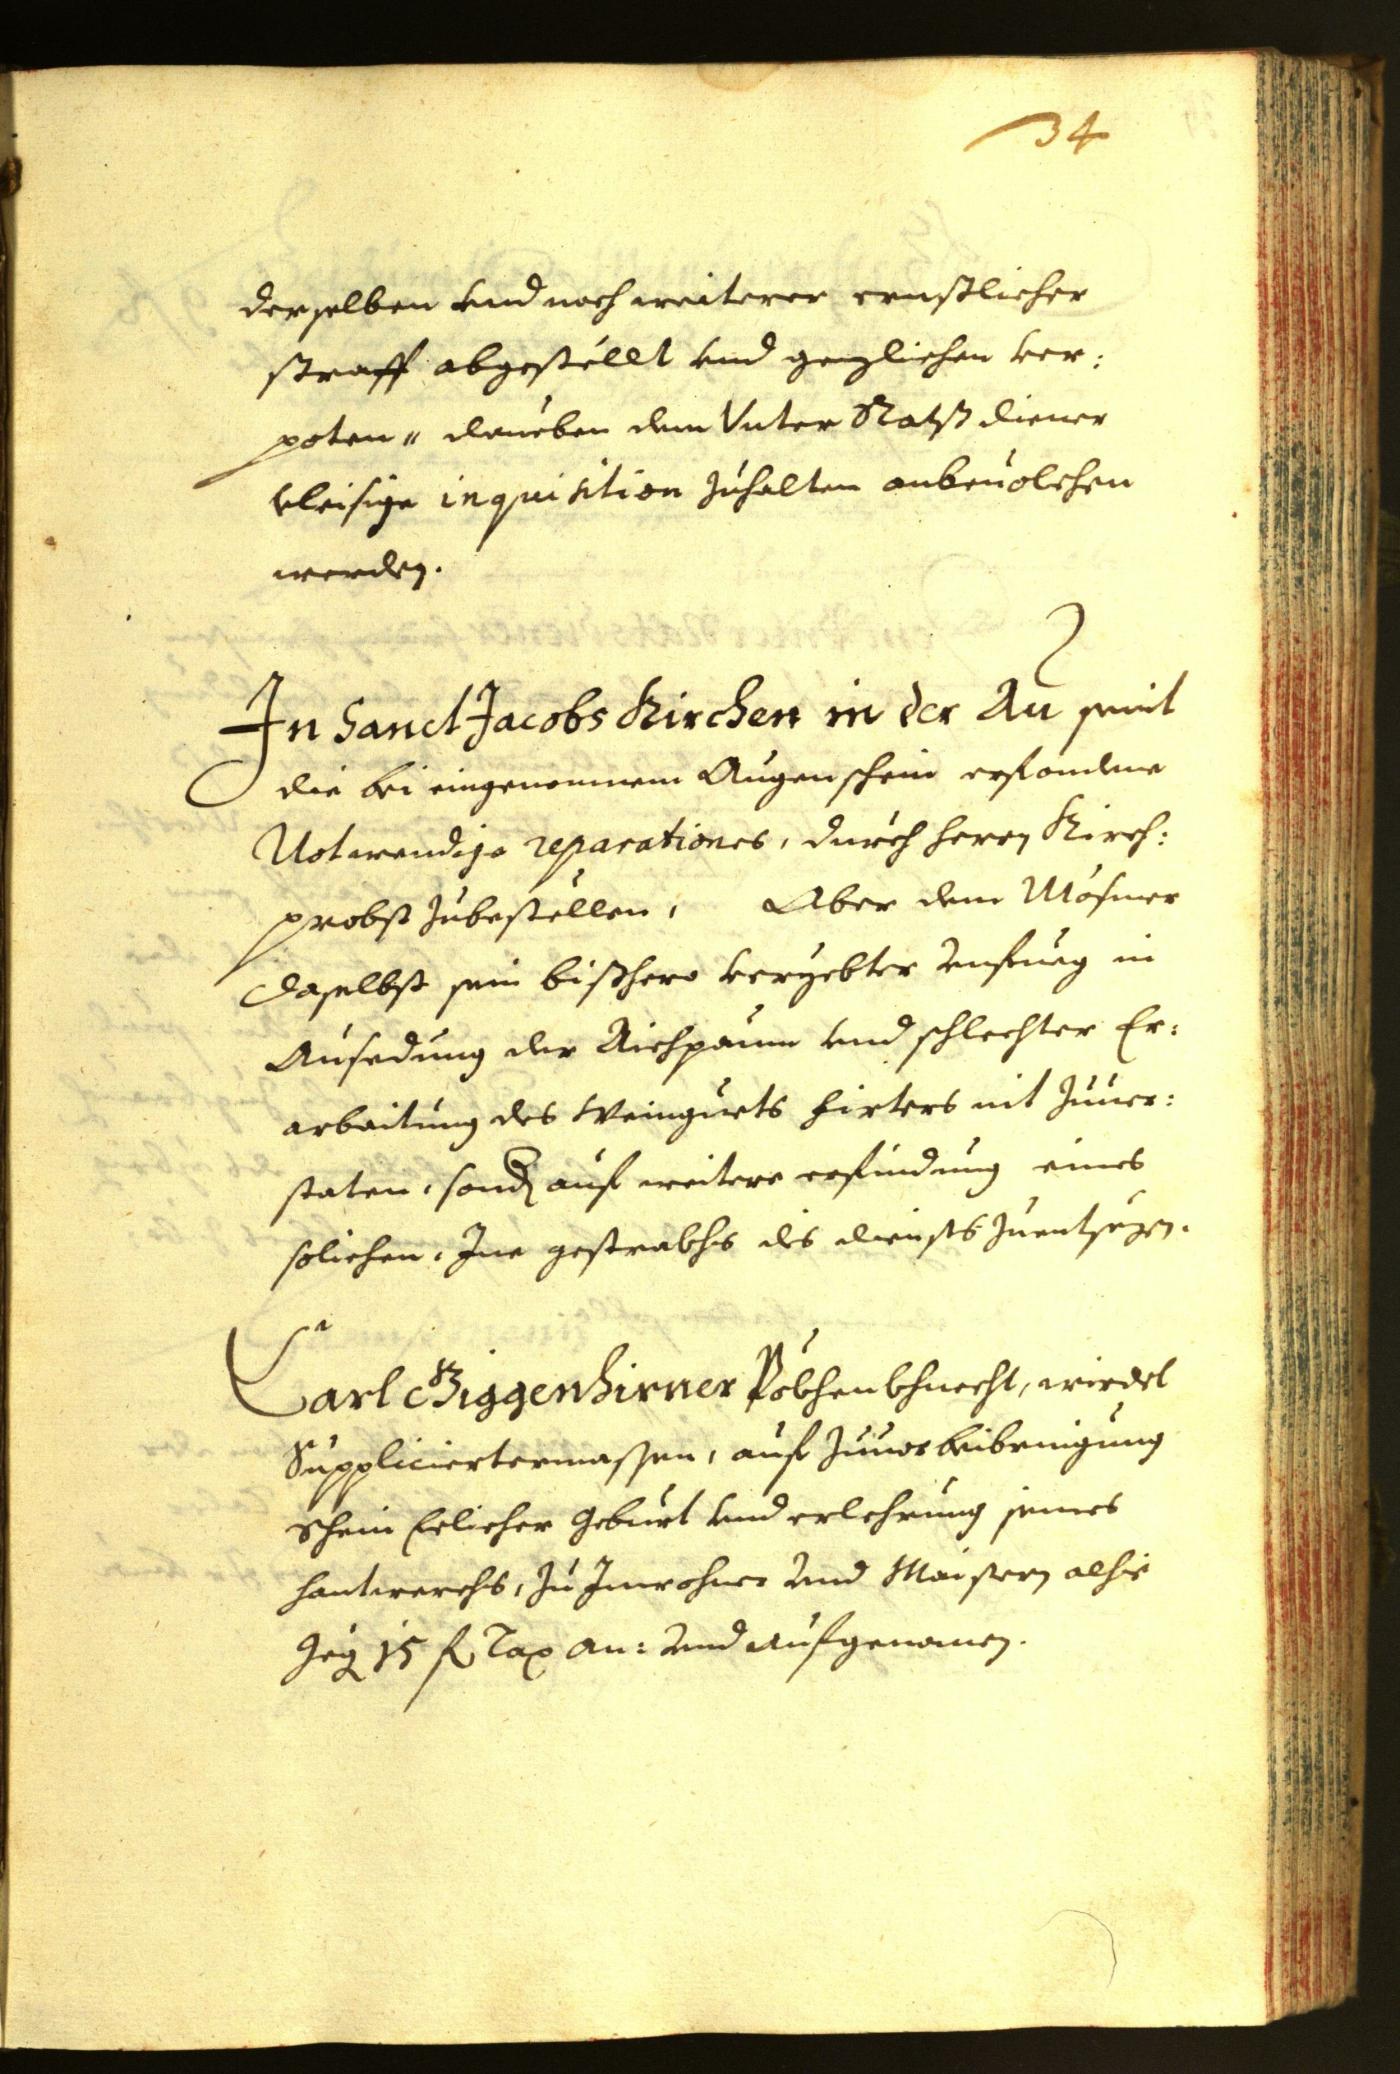 34
derselben vnd noch weiterer ernstlicher
straff abgestéllt vnd genzlichen ver:
poten„ danében dem Vnter Ratß diener
vleisige inquisition zuhalten anbeuolchen
werden.
In Sanct Jacobs Kirchen in der Au seint
die bei eingenomnem Augenschein erfondene
Notwendige reparationes, durch herrn Kirch:
probst zubestellen, Aber dem Mösmer
daselbst sein bißhero veryebter vnfueg in
Ausedung der Aichpaum vnd schlechter Er:
arbaitung des Weinguets firters nit zuuer:
staten, sond auf weitere erfindung eines
solichen, Ine gestrakhs des diensts zuentsezen.
Carl Giggenhirner Pökhenkhnecht, wirdet
Suppliciertermassen, auf zuuor beibringung
schein Eelicher Geburt vnd erlehrung seines
hantwerchs, zu Inwohner vnd Maistern alhie
geg 15 f Tax an: vnd aufgenomen.